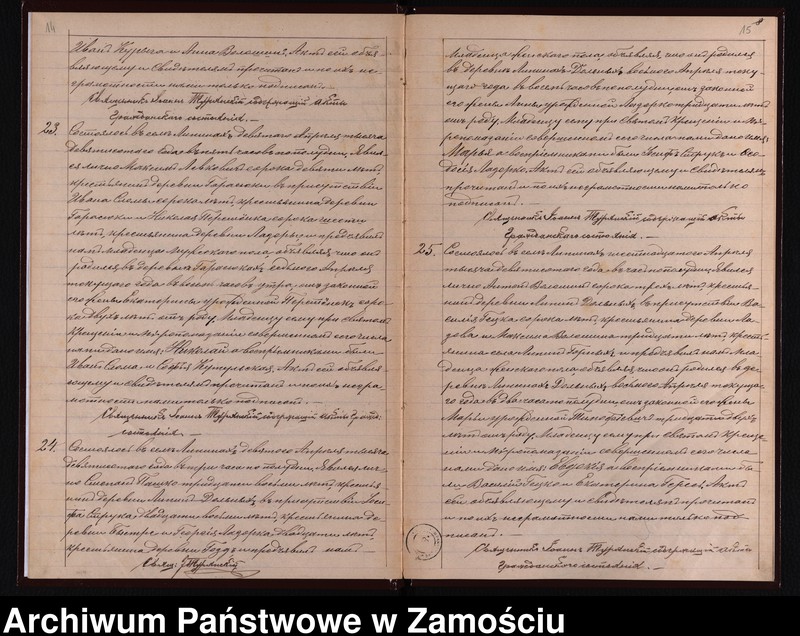 14
Иванъ Курыга и Анна Волошинъ. Актъ сей объя-
вляющему и свидѣтелямъ прочитанъ и по ихъ не-
грамотности нами только подписанъ. —
Священникъ Іоаннъ Турянскій содержащій акты
Гражданскаго состоянія. —
23. Состоялось въ селѣ Липинахъ девятаго Апрѣля тысяча
девятисотаго года въ часовъ по полудни. Явил-
ся лично Максимъ Левковичъ сорока девяти лѣтъ,
крестьянинъ деревни въ присутствіи
Ивана сорока лѣтъ, крестьянина деревни
и Николая сорока шести
лѣтъ, крестьянина деревни и предъявилъ
намъ младенца мужескаго пола, объявляя, что онъ
родился въ деревнѣ седьмого Апрѣля
текущаго года въ часовъ утра, отъ законной
его жены Екатерины урожденной соро-
ка двухъ лѣтъ отъ роду. Младенцу сему при святомъ
крещеніи и мѵропомазаніи совершенномъ сего числа
нами дано имя: Николай, а воспріемниками были
Иванъ и Софія. Актъ сей объявля-
ющему и свидѣтелямъ прочитанъ и по ихъ негра-
мотности нами только подписанъ. —
Священникъ Іоаннъ Турянскій содержащій акты гражд.
состоянія. —
24. Состоялось въ селѣ Липинахъ девятаго Апрѣля тысяча
девятисотаго года въ три часа по полудни. Явился лич-
но Степанъ тридцати восьми лѣтъ, крестья-
нинъ деревни Липинъ Дольныхъ, въ присутствіи Іоси-
фа Струка двадцати восьми лѣтъ, крестьянина де-
ревни Быстре и Георгія Лазорка, двадцати лѣтъ,
крестьянина деревни и предъявилъ намъ —
Свящ: І Турянскій
15
младенца женскаго пола, объявляя, что онъ родился
въ деревнѣ Липинахъ Дольныхъ восьмого Апрѣля теку-
щаго года въ восемь часовъ по полудни, отъ законной
его жены Анны урожденной Лазорко тридцати лѣтъ
отъ роду. Младенцу сему при Святомъ Крещеніи и Мѵ-
ропомазаніи совершенномъ сего числа нами дано имя:
Марья, а воспріемниками были Іосифъ Струкъ и Ѳео-
досія Лазорко. Актъ сей объявляющему и свидѣтелямъ
прочитанъ и по ихъ неграмотности нами только
подписанъ. —
Священникъ Іоаннъ Турянскій содержащій акты
Гражданскаго состоянія. —
25. Состоялось въ селѣ Липинахъ шестнадцатаго Апрѣля
тысяча девятисотаго года, въ часъ по полудни. Явился
лично Антонъ Волошинъ сорока трехъ лѣтъ, крестья-
нинъ деревни Липинъ Дольныхъ, въ присутствіи Ва-
силія Гецка сорока лѣтъ, крестьянина деревни
и Максима Волошина тридцати лѣтъ, кресть-
янина села Липинъ Горныхъ и предъявилъ намъ мла-
денца женскаго пола, объявляя, что онъ родился въ де-
ревнѣ Липинахъ Дольныхъ, восьмого Апрѣля текуща-
го года въ два часа по полудни, отъ законной его жены
Маріи урожденной тридцати двухъ
лѣтъ отъ роду. Младенцу сему при святомъ креще-
ніи и Мѵропомазаніи совершенномъ сего числа
нами дано имя: Евдокія, а воспріемниками бы-
ли Василій Гецко и Екатерина. Актъ
сей объявляющему и свидѣтелямъ прочитанъ
и по ихъ неграмотности нами только под-
писанъ. —
Священникъ Іоаннъ Турянскій содержащій акты
Гражданскаго состоянія. —
Archiwum Państwowe w Zamościu